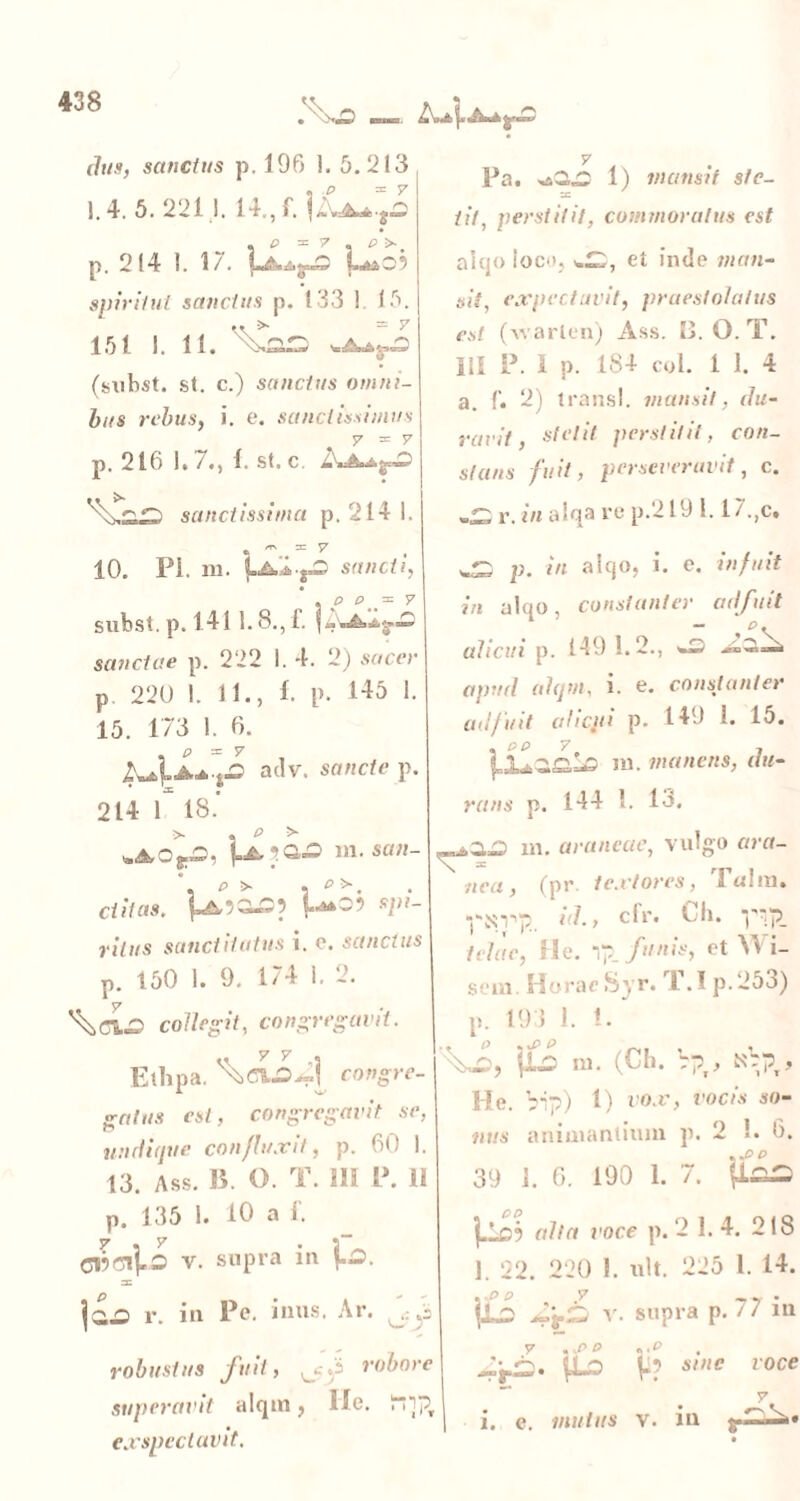 438
ܩܠ. — ܩܕܝܫܐܝܬ
dus, sanctus p. 196 l. 5. 213
l. 4. 5. 221 l. 14., f. ܩܕܝܫܬܐ
p. 214 l. 17. ܪܘܚܐ ܩܕܝܫܐ
spiritui sanctus p. 133 l. 15.
151 l. 11. ܩܕܝܫ ܒܟܠ
(subst. st. c.) sanctus omni-
bus rebus, i. e. sanctissimus
p. 216 l. 7., f. st. c. ܩܕܝܫܬ
ܒܟܠ sanctissima p. 214 l.
10. Pl. m. ܩܕܝܫܐ sancti,
subst. p. 141 l. 8., f. ܩܕܝܫܬܐ
sanctae p. 222 l. 4. 2) sacer
p. 220 l. 11., f. p. 145 l.
15. 173 l. 6.
ܩܕܝܫܐܝܬ adv. sancte p.
214 l 18.
ܩܘܕܫ, ܩܘܕܫܐ m. san-
ctitas. ܪܘܚܐ ܕܩܘܕܫܐ spi-
ritus sanctitatus i. e. sanctus
p. 150 l. 9. 174 l. 2.
ܩܗܠ collegit, congregavit.
Ethpa. ܐܬܩܗܠ congre-
gatus est, congregavit se,
undique confluxit, p. 60 l.
13. Ass. B. O. T. III P. II
p. 135 l. 10 a f.
v. supra in ܩܐ.
ܩܘܐ r. in Pe. inus. Ar. قوى
robustus fuit, قوى robore
superavit alqm, He. קוה
exspectavit.
Pa. ܩܘܝ 1) mansit ste-
tit, perstitit, commoratus est
alqo loco, ܒ, et inde man-
sit, expectavit, praestolatus
est (warten) Ass. B. O. T.
III P. I p. 184 col. 1 l. 4
a. f. 2) transl. mansit, du-
ravit, stetit perstitit, con-
stans fuit, perseveravit, c.
ܒ r. in alqa re p. 219 l. 17., c.
ܒ p. in alqo, i. e. infuit
in alqo, constanter adfuit
alicui p. 149 l. 2., ܠܘܬ
apud alqm, i. e. constanter
adfuit alicui p. 149 l. 15.
ܡܩܘܝܢܐ m. manens, du-
rans p. 144 l. 13.
m. araneae, vulgo ara-
nea, (pr. textores, Talm.
id., cfr. Ch.
telae, He. קו funis, et Wi-
sem. Horae Syr. T. I p. 253)
p. 193 l. 1.
ܩܠ, ܩܠܐ m. (Ch. קל, קלא,
He. קול) 1) vox, vocis so-
nus animantium p. 2 l. 6.
39 l. 6. 190 l. 7. ܒܩܠܐ
ܪܡܐ alta voce p. 2 l. 4. 218
l. 22. 220 l. ult. 225 l. 14.
ܩܠܐ v. supra p. 77 in
ܕܠܐ ܩܠܐ sine voce
i. e. mutus v. in